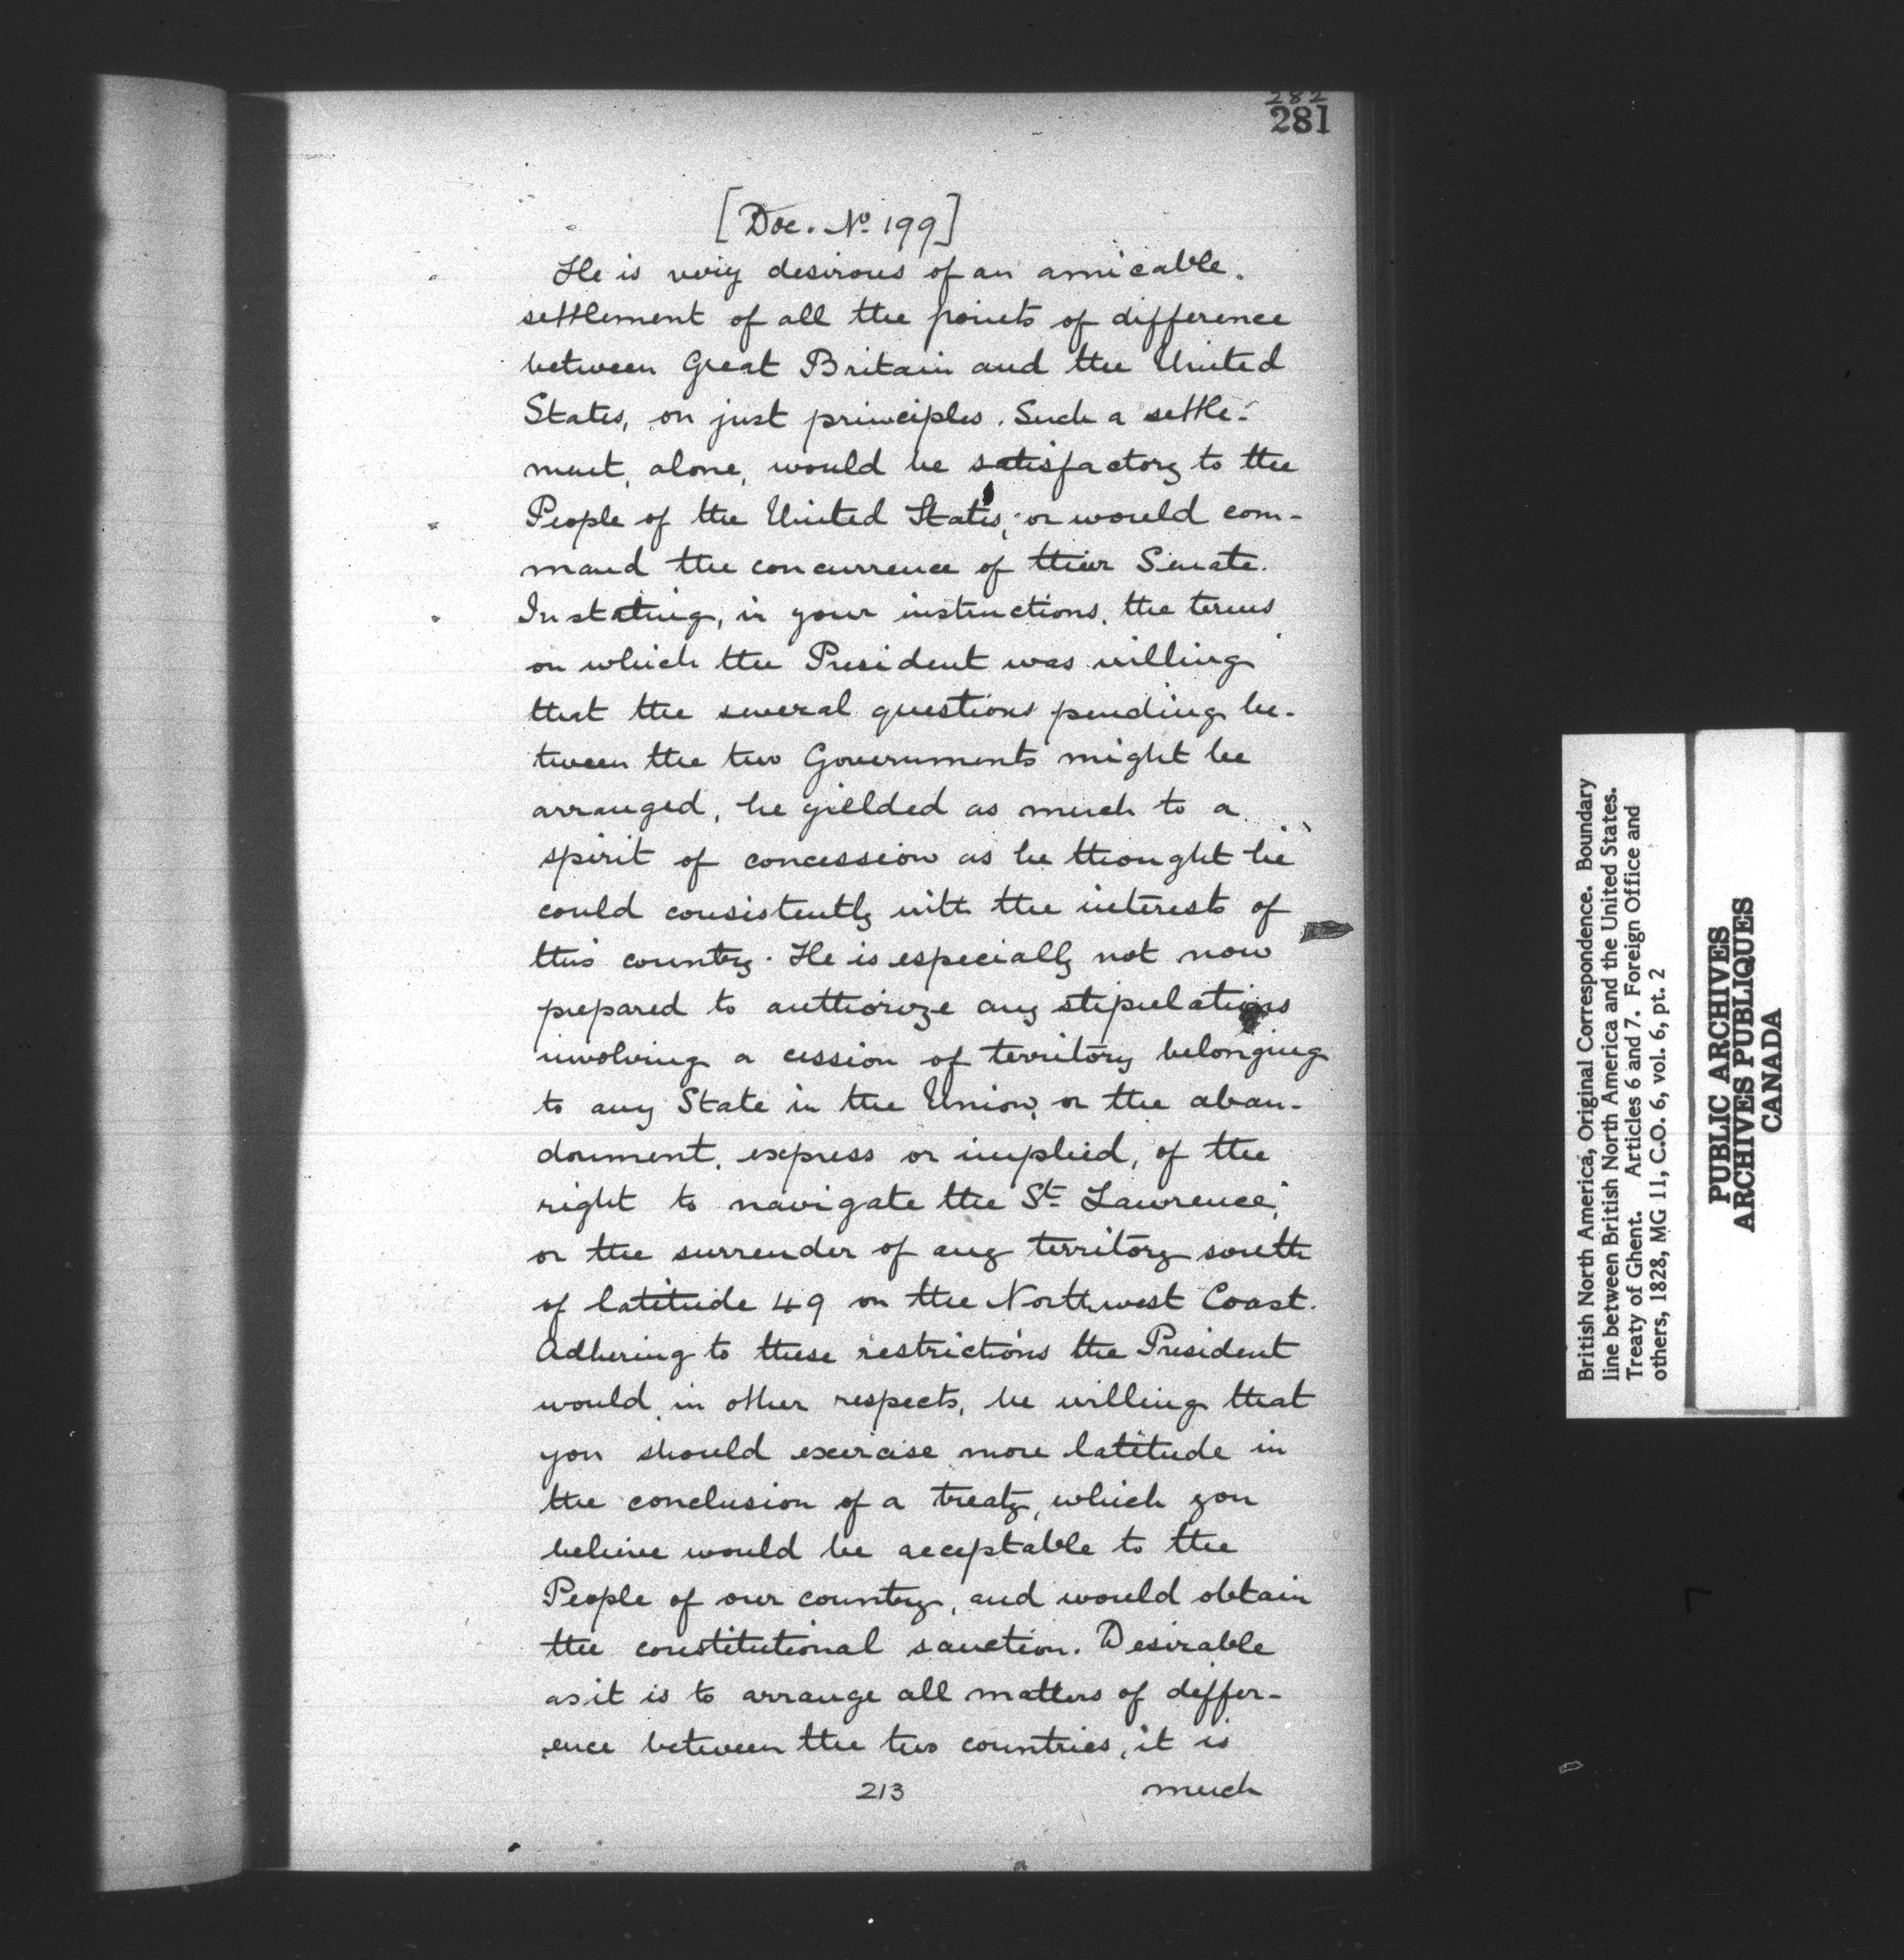 282
281
[Doc. No. 199]
He is very desirous of an amicable.
settlement of all the points of difference
between Great Britain and the United
States, on just principles. Such a settle-
ment, alone, would be satisfactory to the
People of the United States, or would com-
mand the concurrence of their Senate.
In stating, in your instructions, the terms
on which the President was willing
that the several questions pending be-
tween the two Governments might be
arranged, he yielded as much to a
spirit of concession as he thought he
could consistently with the interests of
this country. He is especially not now
prepared to authorize any stipulations
involving a cession of territory belonging
to any State in the Union, or the aban-
donment, express or implied, of the
right to navigate the St. Lawrence,
or the surrender of any territory south
of latitude 49 on the Northwest Coast.
Adhering to these restrictions the President
would, in other respects, be willing that
you should exercise more latitude in
the conclusion of a treaty, which you
believe would be acceptable to the
People of our country, and would obtain
the constitutional sanction. Desirable
as it is to arrange all matters of differ-
ence between the two countries, it is
213 much
British North America, Original Correspondence. Boundary
line between British North America and the United States.
Treaty of Ghent. Articles 6 and 7. Foreign Office and
others, 1828, MG 11, C.O. 6, vol. 6, pt. 2
PUBLIC ARCHIVES
ARCHIVES PUBLIQUES
CANADA